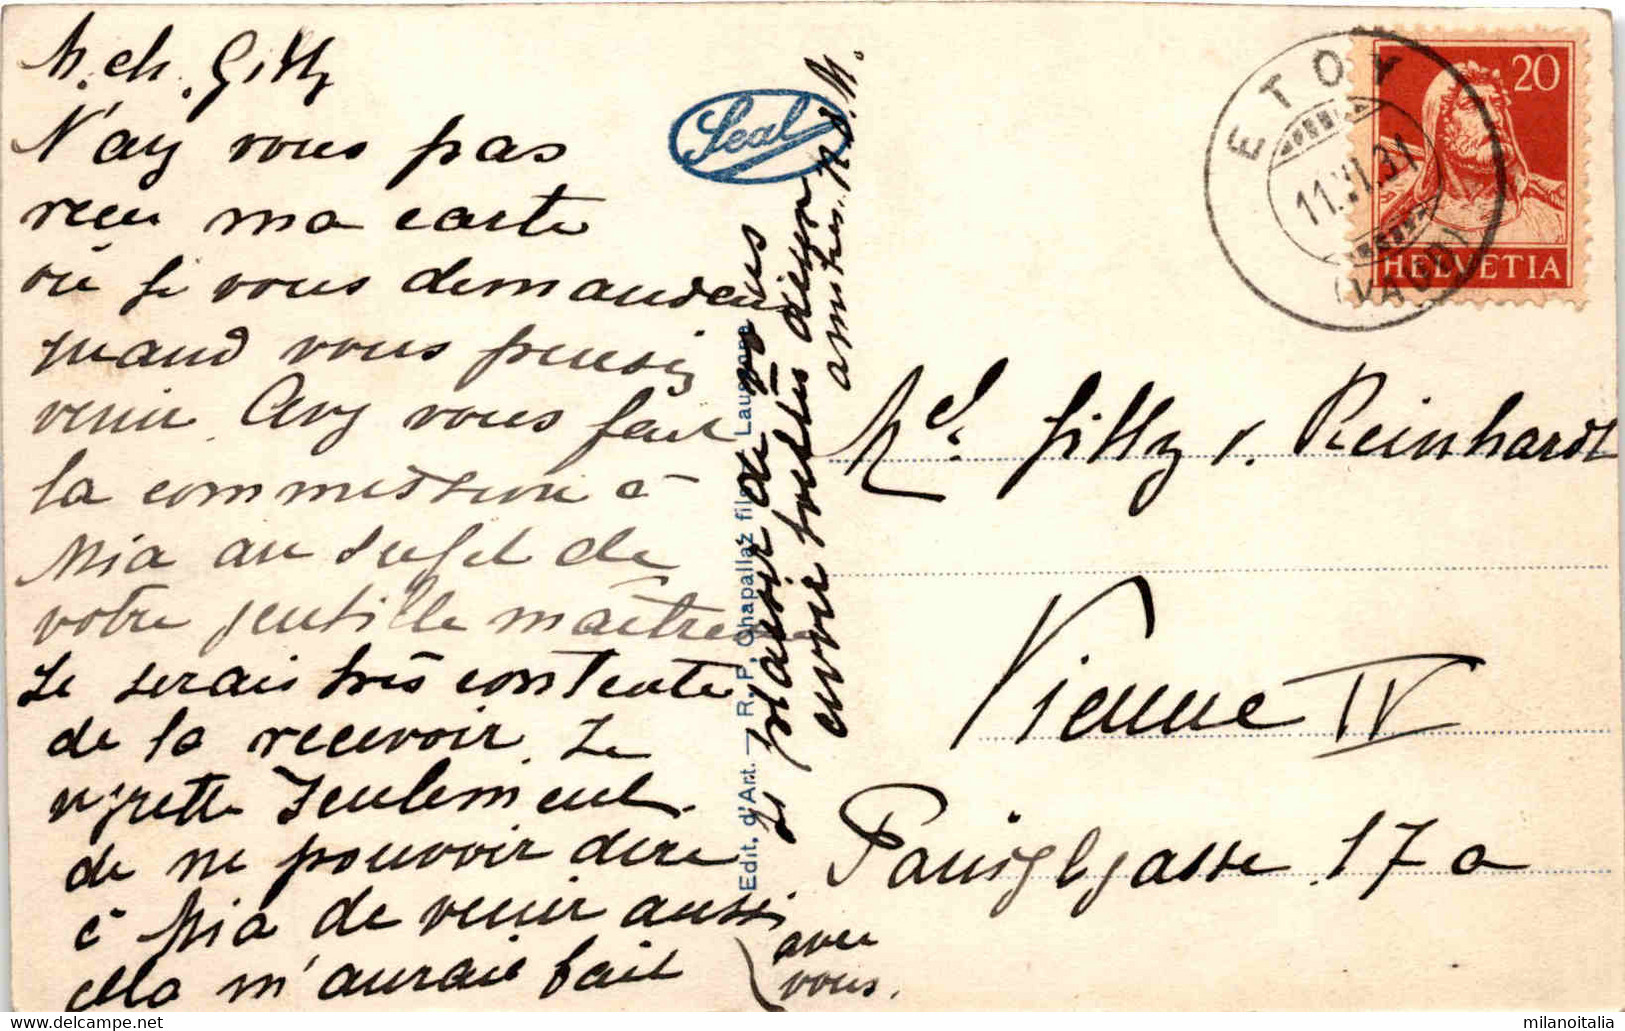 M. ch. Gitty
N'avez vous pas
reçu ma carte
où je vous demandais
quand vous pensiez
venir. Avez vous fait
la commission à
Mia au sujet de
votre gentille maîtresse
Je serais très contente
de la recevoir. Je
regrette seulement
de ne pouvoir dire
à Mia de venir aussi
avec
vous.
cela m'aurait fait
le plaisir de vous
avoir toutes
amitiés. R. S. M.
Seal
Edit. d'Art. — R. P. Chapallaz fils, Lausanne
ETOY
11.VI.31
(VAUD)
20
HELVETIA
Mel. Gitty v. Reinhardt
Vienne IV
Paniglgasse 17 a
milanoitalia